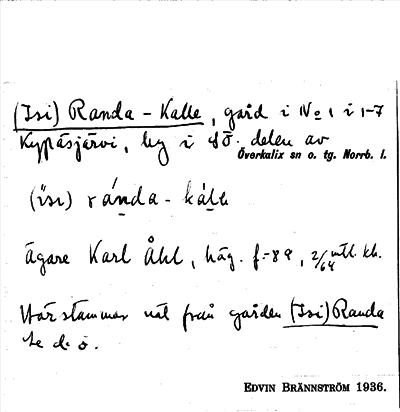 (Isi) Randa - Kalle, gård i No 1 i 1-7
Kypäsjärvi, by i sö. delen av
Överkalix sn o. tg. Norrb. l.
(isi) ránda - kálle
Ägare Karl Åhl, häg. f. -89, 2/64 mtl. kh.
Härstammar väl från gården (Isi) Randa
se d. o.
EDVIN BRÄNNSTRÖM 1936.